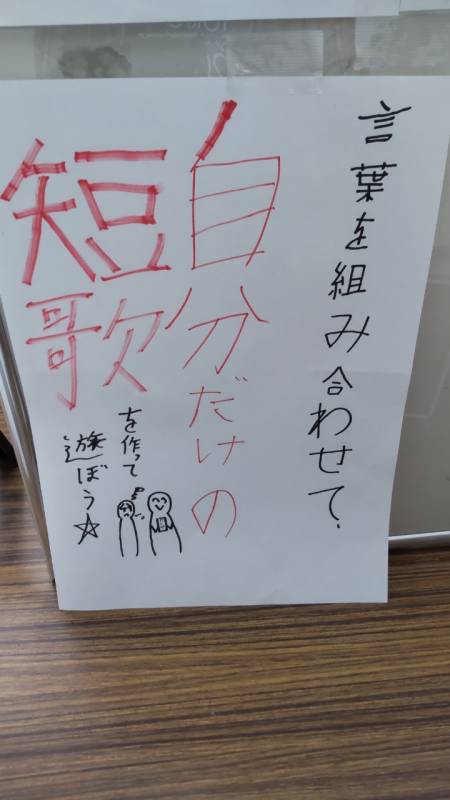 言葉を組み合わせて、
自分だけの
短歌
を作って
遊ぼう☆